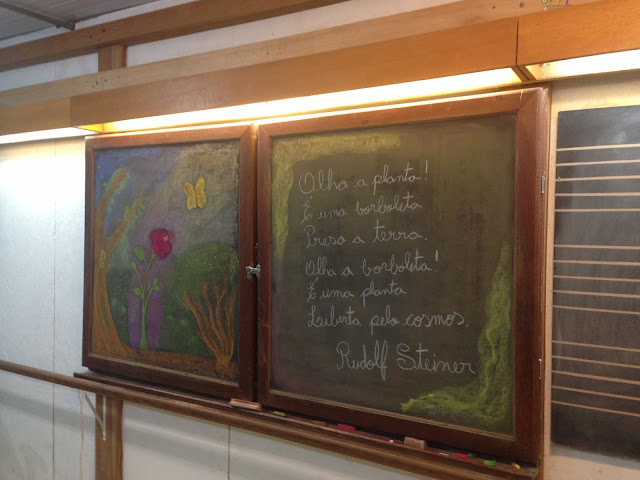 Olha a planta!
É uma borboleta
Presa a terra.
Olha a borboleta!
É uma planta
Liberta pelo cosmos.
Rudolf Steiner